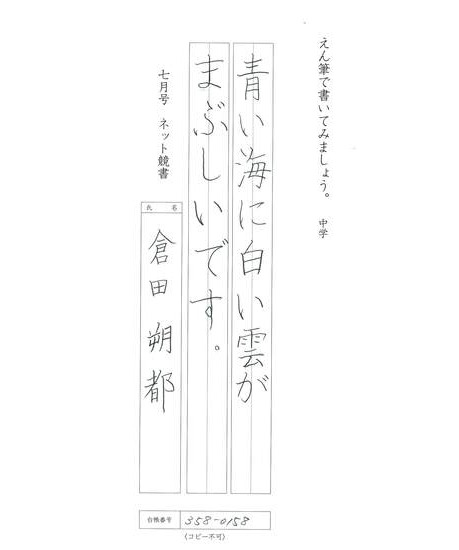 えん筆で書いてみましょう。 中学
青い海に白い雲が
まぶしいです。
七月号 ネット競書
氏 名
倉田 朔都
台帳番号 358-0158
(コピー不可)